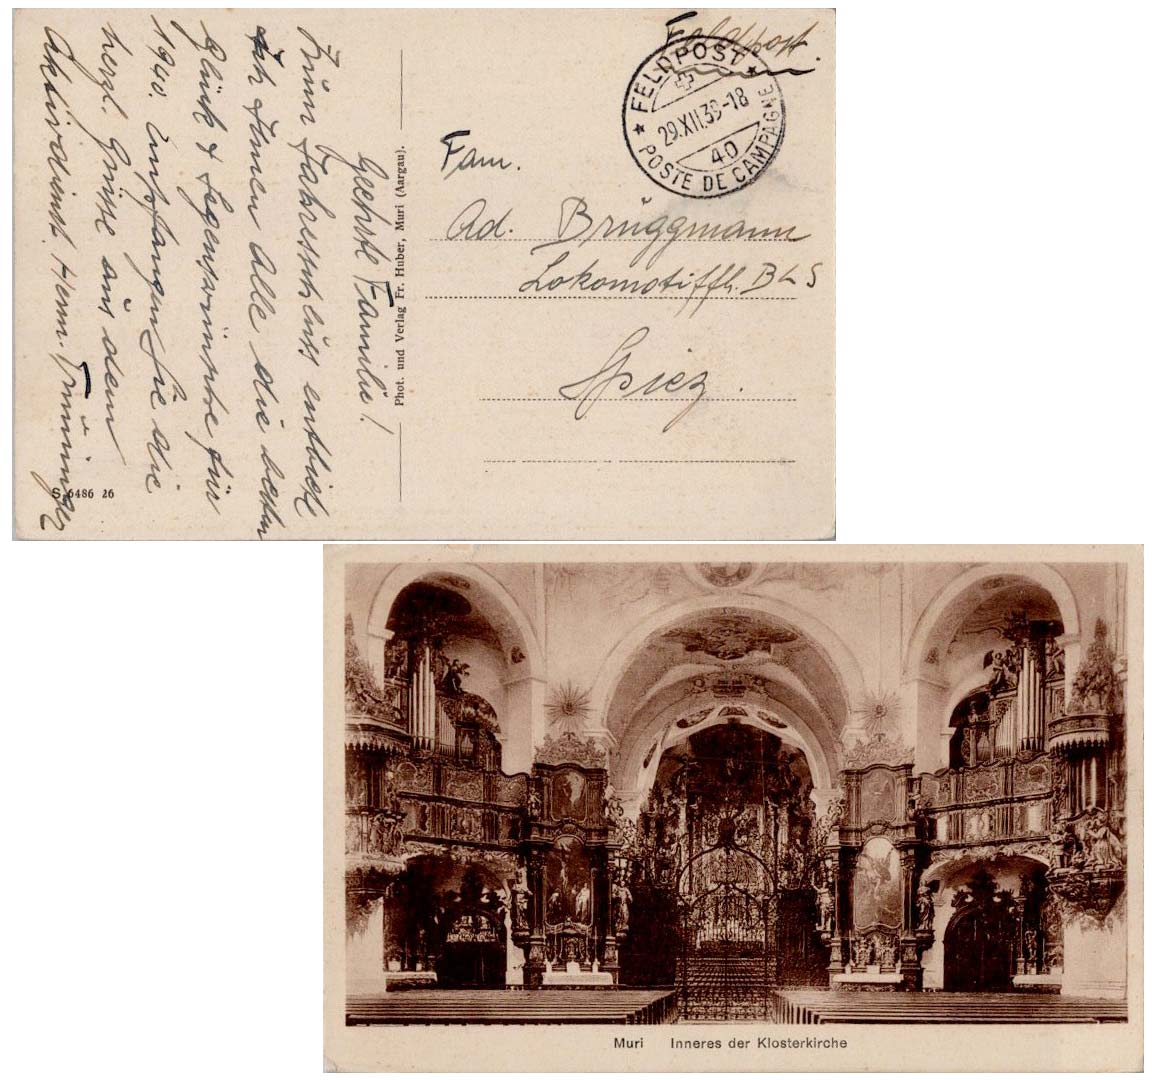 Feldpost.
FELDPOST
29.XII.39-18
40
POSTE DE CAMPAGNE
Fam.
Ad. Brüggmann
Lokomotiffh. BLS
Spiez.
Phot. und Verlag Fr. Huber, Muri (Aargau).
Geehrte Familie!
Zum Jahresschluss entbiete
ich Ihnen Alle die besten
Glück & Segenswünsche für
1940. Empfangen Sie die
herzl. Grüsse aus dem
Aktivdienst. Herm.
S 6486 26
Muri Inneres der Klosterkirche